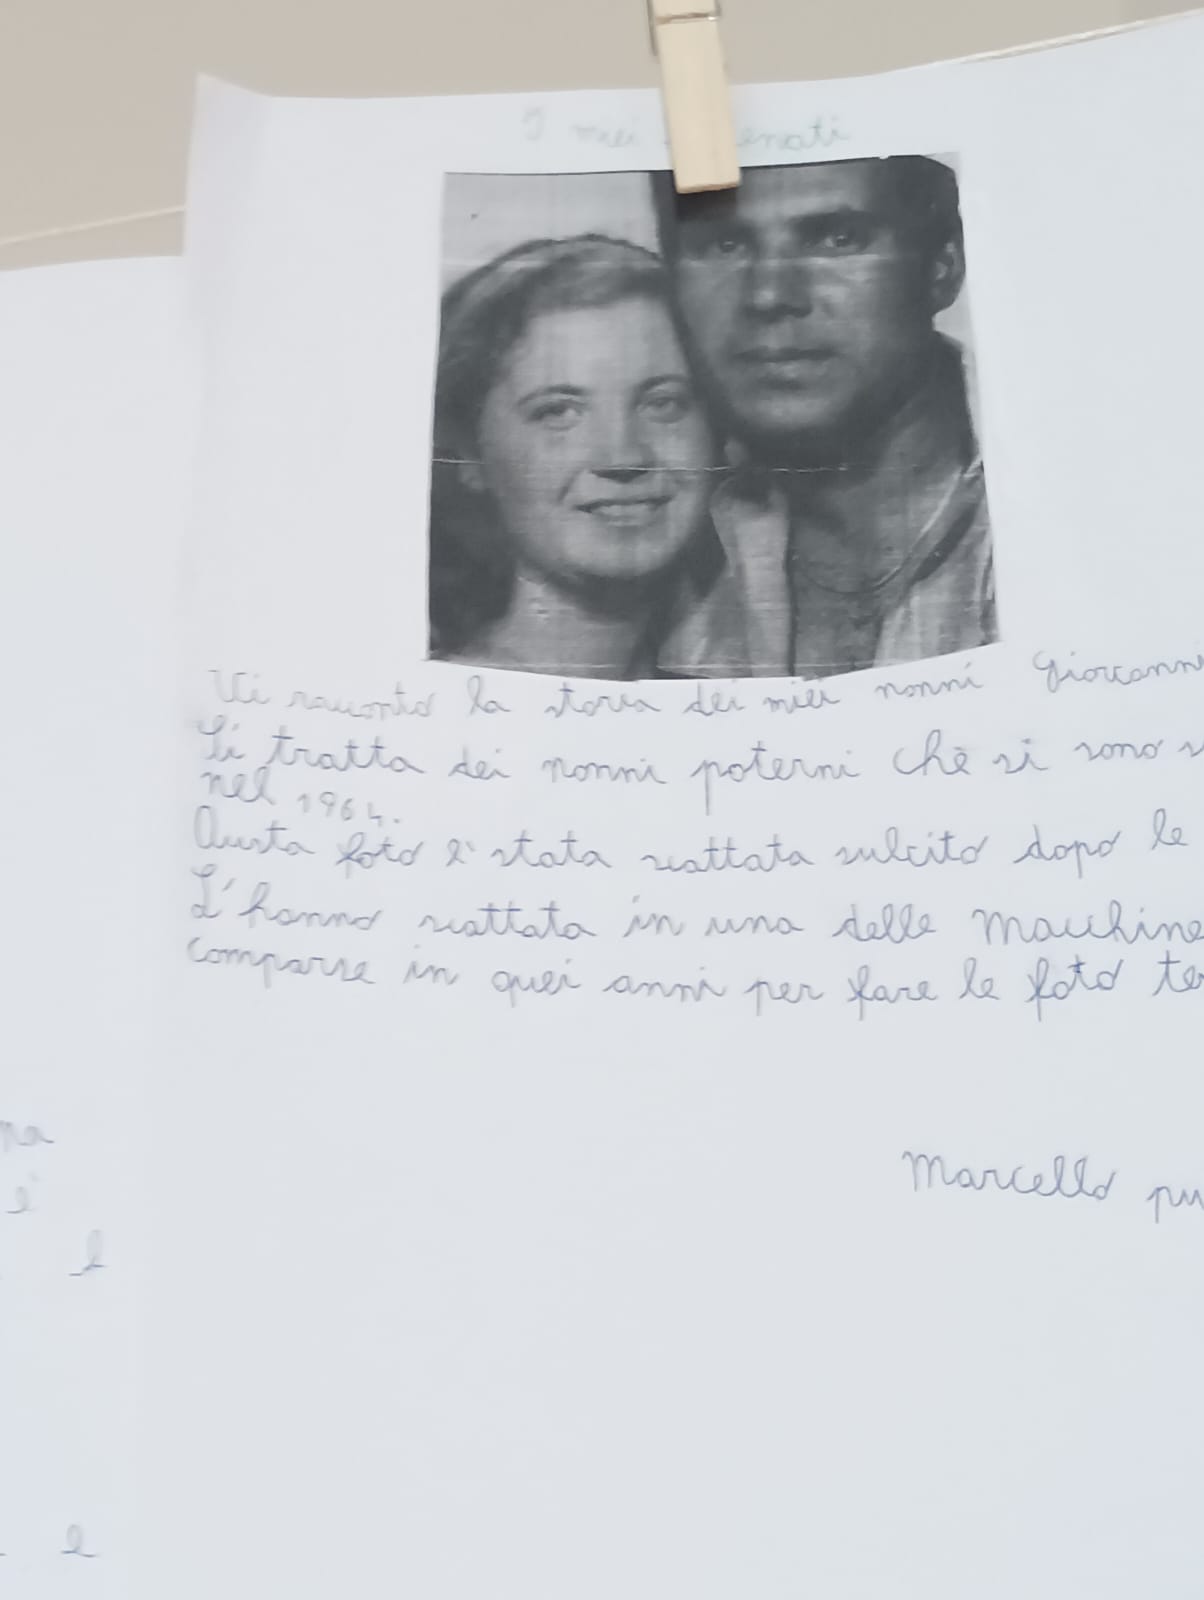 I miei enati
Vi racconto la storia dei miei nonni Giovanni
Si tratta dei nonni paterni che si sono
nel 1964.
Questa foto è stata scattata subito dopo le
L'hanno scattata in una delle macchine
comparse in quei anni per fare le foto
Marcello
è
e
e